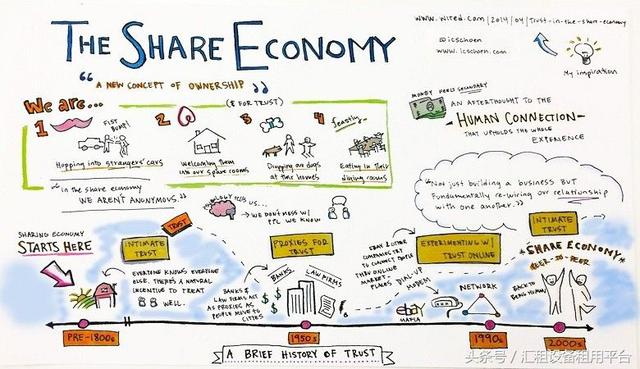 THE SHARE ECONOMY
"A NEW CONCEPT OF OWNERSHIP"
www.wired.com/2014/04/trust-in-the-share-economy
@icschoen
www.icschoen.com
My inspiration
We are...
($ FOR TRUST)
1
FIST BUMP!
Hopping into strangers' cars
2
Welcoming them
into our spare rooms
3
Dropping our dogs
at their homes
4
feastly
Eating in their
dining rooms
MONEY FEELS SECONDARY
AN AFTERTHOUGHT TO THE
HUMAN CONNECTION
THAT UPHOLDS THE WHOLE
EXPERIENCE
"In the share economy
WE AREN'T ANONYMOUS."
PSYCHOLOGY TELLS US...
→ WE DON'T MESS W/
PPL WE KNOW
"Not just building a business BUT
Fundamentally re-wiring our relationship
with one another."
SHARING ECONOMY
STARTS HERE
INTIMATE
TRUST
TRUST
EVERYONE KNOWS EVERYONE
ELSE, THERE'S A NATURAL
INCENTIVE TO TREAT
WELL.
PROXIES FOR
TRUST
BANKS
LAW FIRMS
BANKS &
LAW FIRMS ACT
AS PROXIES AS
PEOPLE MOVE TO
CITIES
EXPERIMENTING W/
TRUST ONLINE
EBAY & OTHER
COMPANIES TRY
TO CONNECT PEOPLE
THRU ONLINE
MARKET-
PLACES
DIAL-UP
MODEM
NETWORK
INTIMATE
TRUST
"SHARE ECONOMY"
PEER-TO-PEER
BACK TO
BEING HUMAN
PRE-1800s
1950s
1990s
2000s
A BRIEF HISTORY OF TRUST
头条号 / 汇租设备租用平台